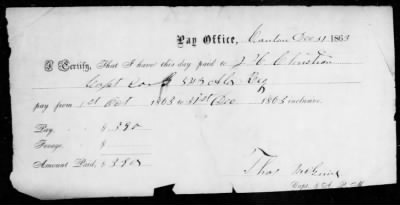 Pay Office, Canton Dec 31 1863
I Certify, That I have this day paid to J W Christian
Capt Co 54 Ala Reg
pay from 1st Oct 1863 to 31st Dec 1863 inclusive.
Pay $ 390
Forage $
Amount Paid, $ 390
Thos
Capt.